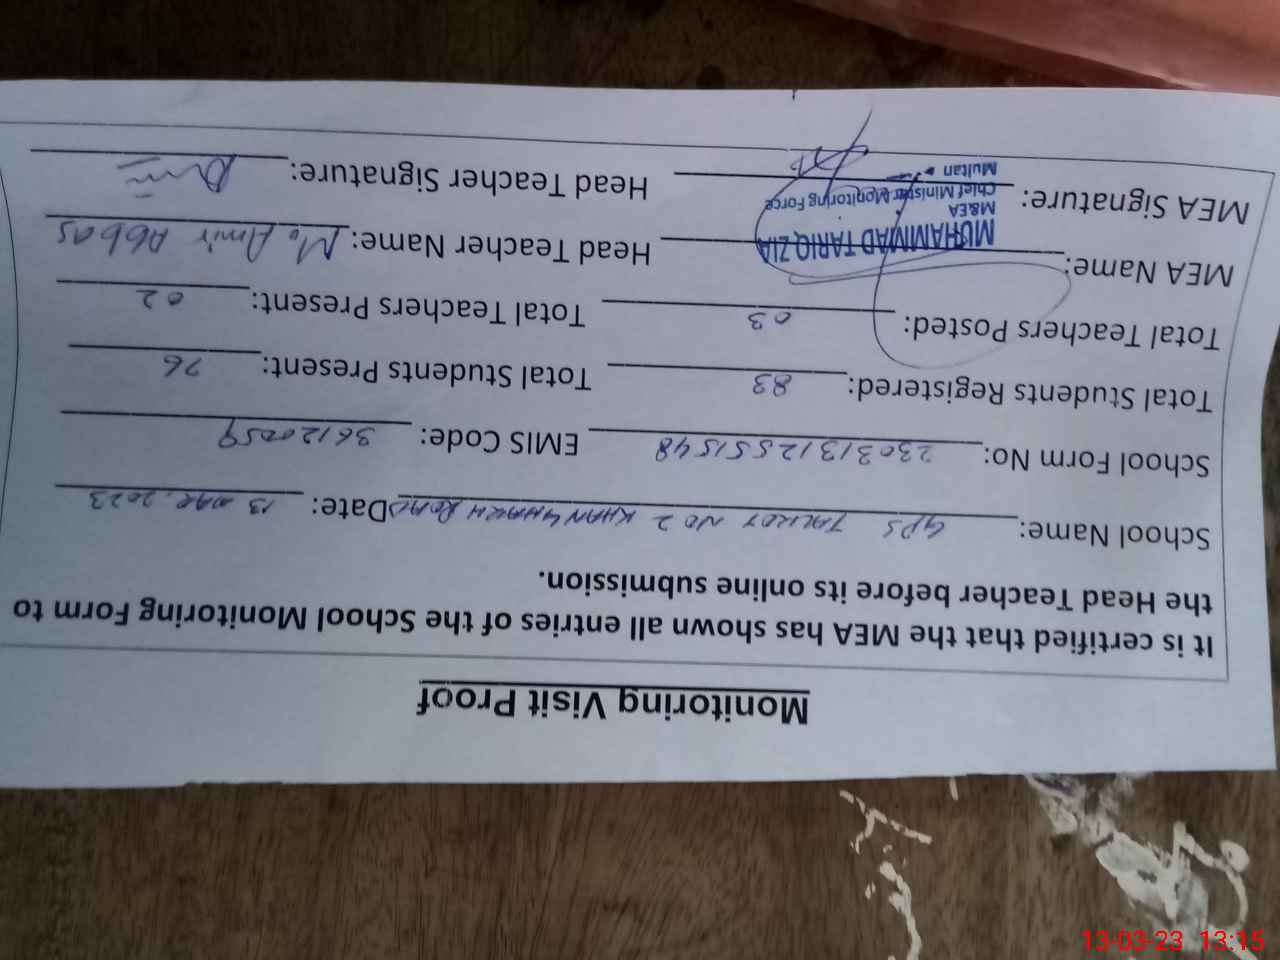 Monitoring Visit Proof
It is certified that the MEA has shown all entries of the School Monitoring Form to
the Head Teacher before its online submission.
School Name: GPS TALKOT NO 2 KHAN GHARH ROAD Date: 13 MAR. 2023
School Form No: 23031312551548 EMIS Code: 36120059
Total Students Registered: 83 Total Students Present: 76
Total Teachers Posted: 03 Total Teachers Present: 02
MEA Name: MUHAMMAD TARIQ ZIA Head Teacher Name: M. Amir Abbas
M&EA
Chief Minister Monitoring Force
MEA Signature: Multan Head Teacher Signature:
13-03-23 13:15